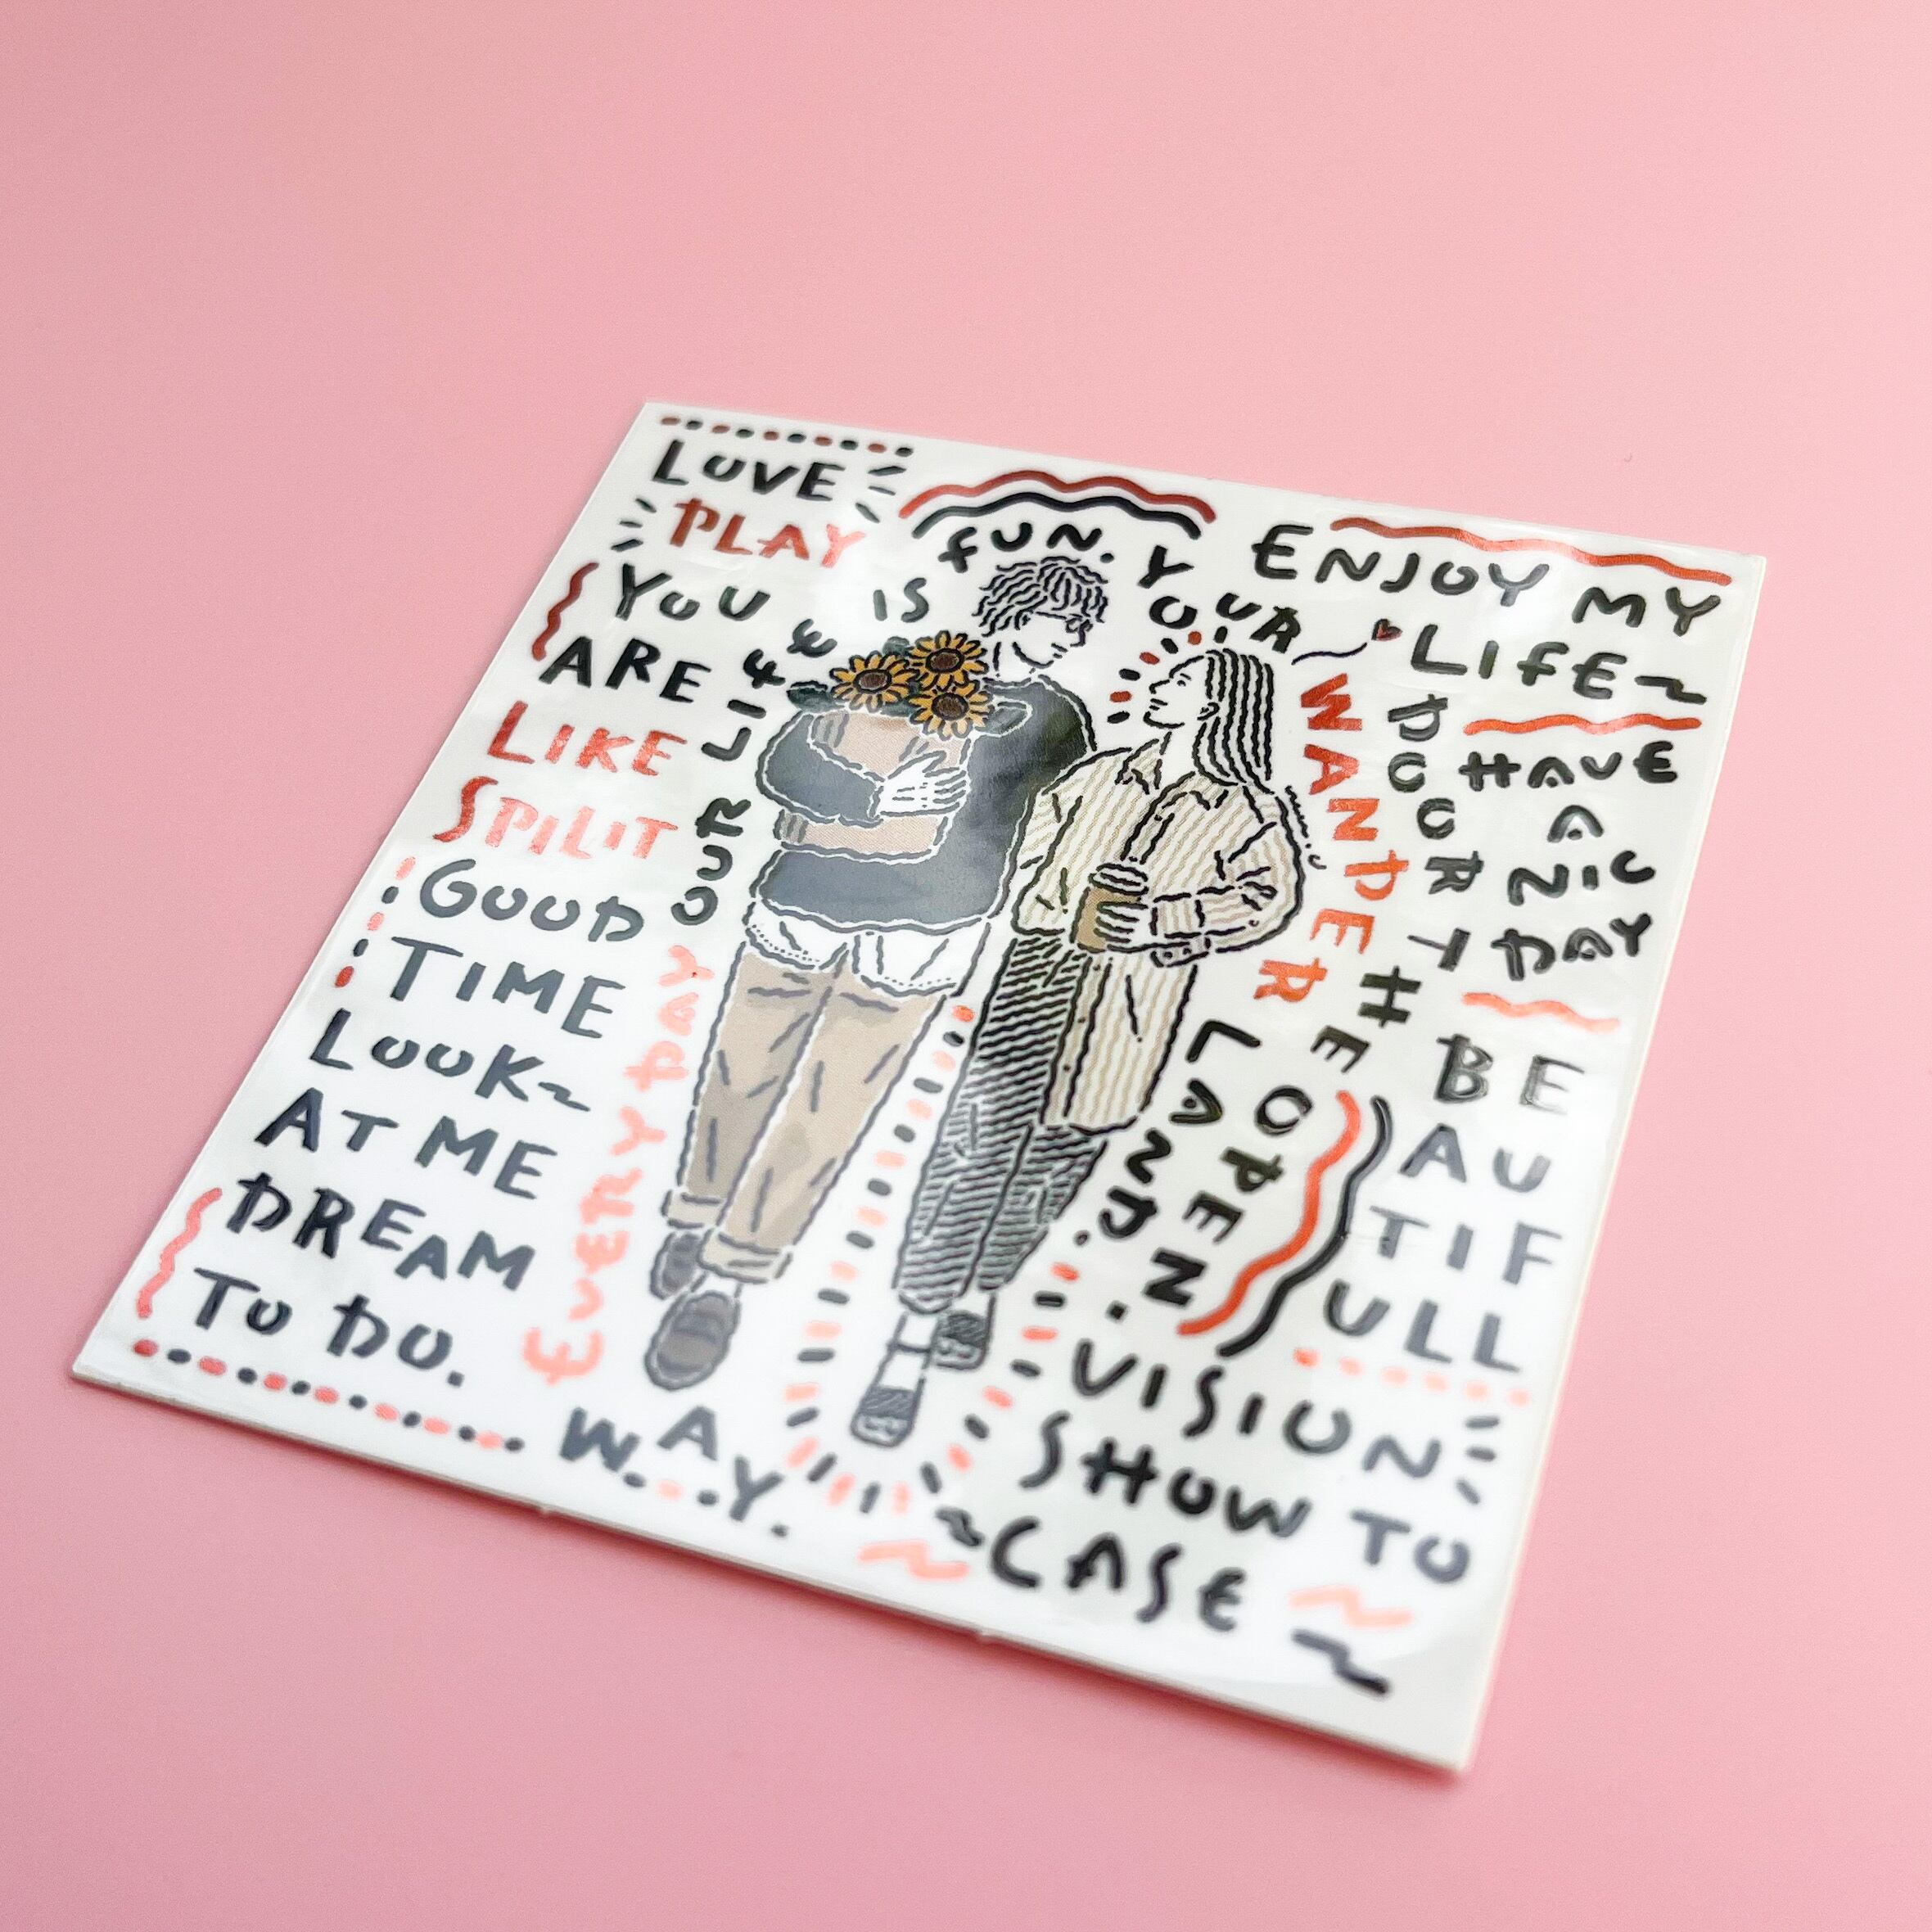 LOVE
PLAY
YOU
ARE
LIKE
SPILIT
GOOD
TIME
LOOK~
AT ME
DREAM
TO DO.
EVERYDAY OUR LIFE IS FUN. YOUR WANDER LAND.
W.A.Y.
ENJOY MY
LIFE~
DOOR THE OPEN.
HAVE
A
NIC
DAY
BE
AU
TIF
ULL
VISION
SHOW TO
CASE